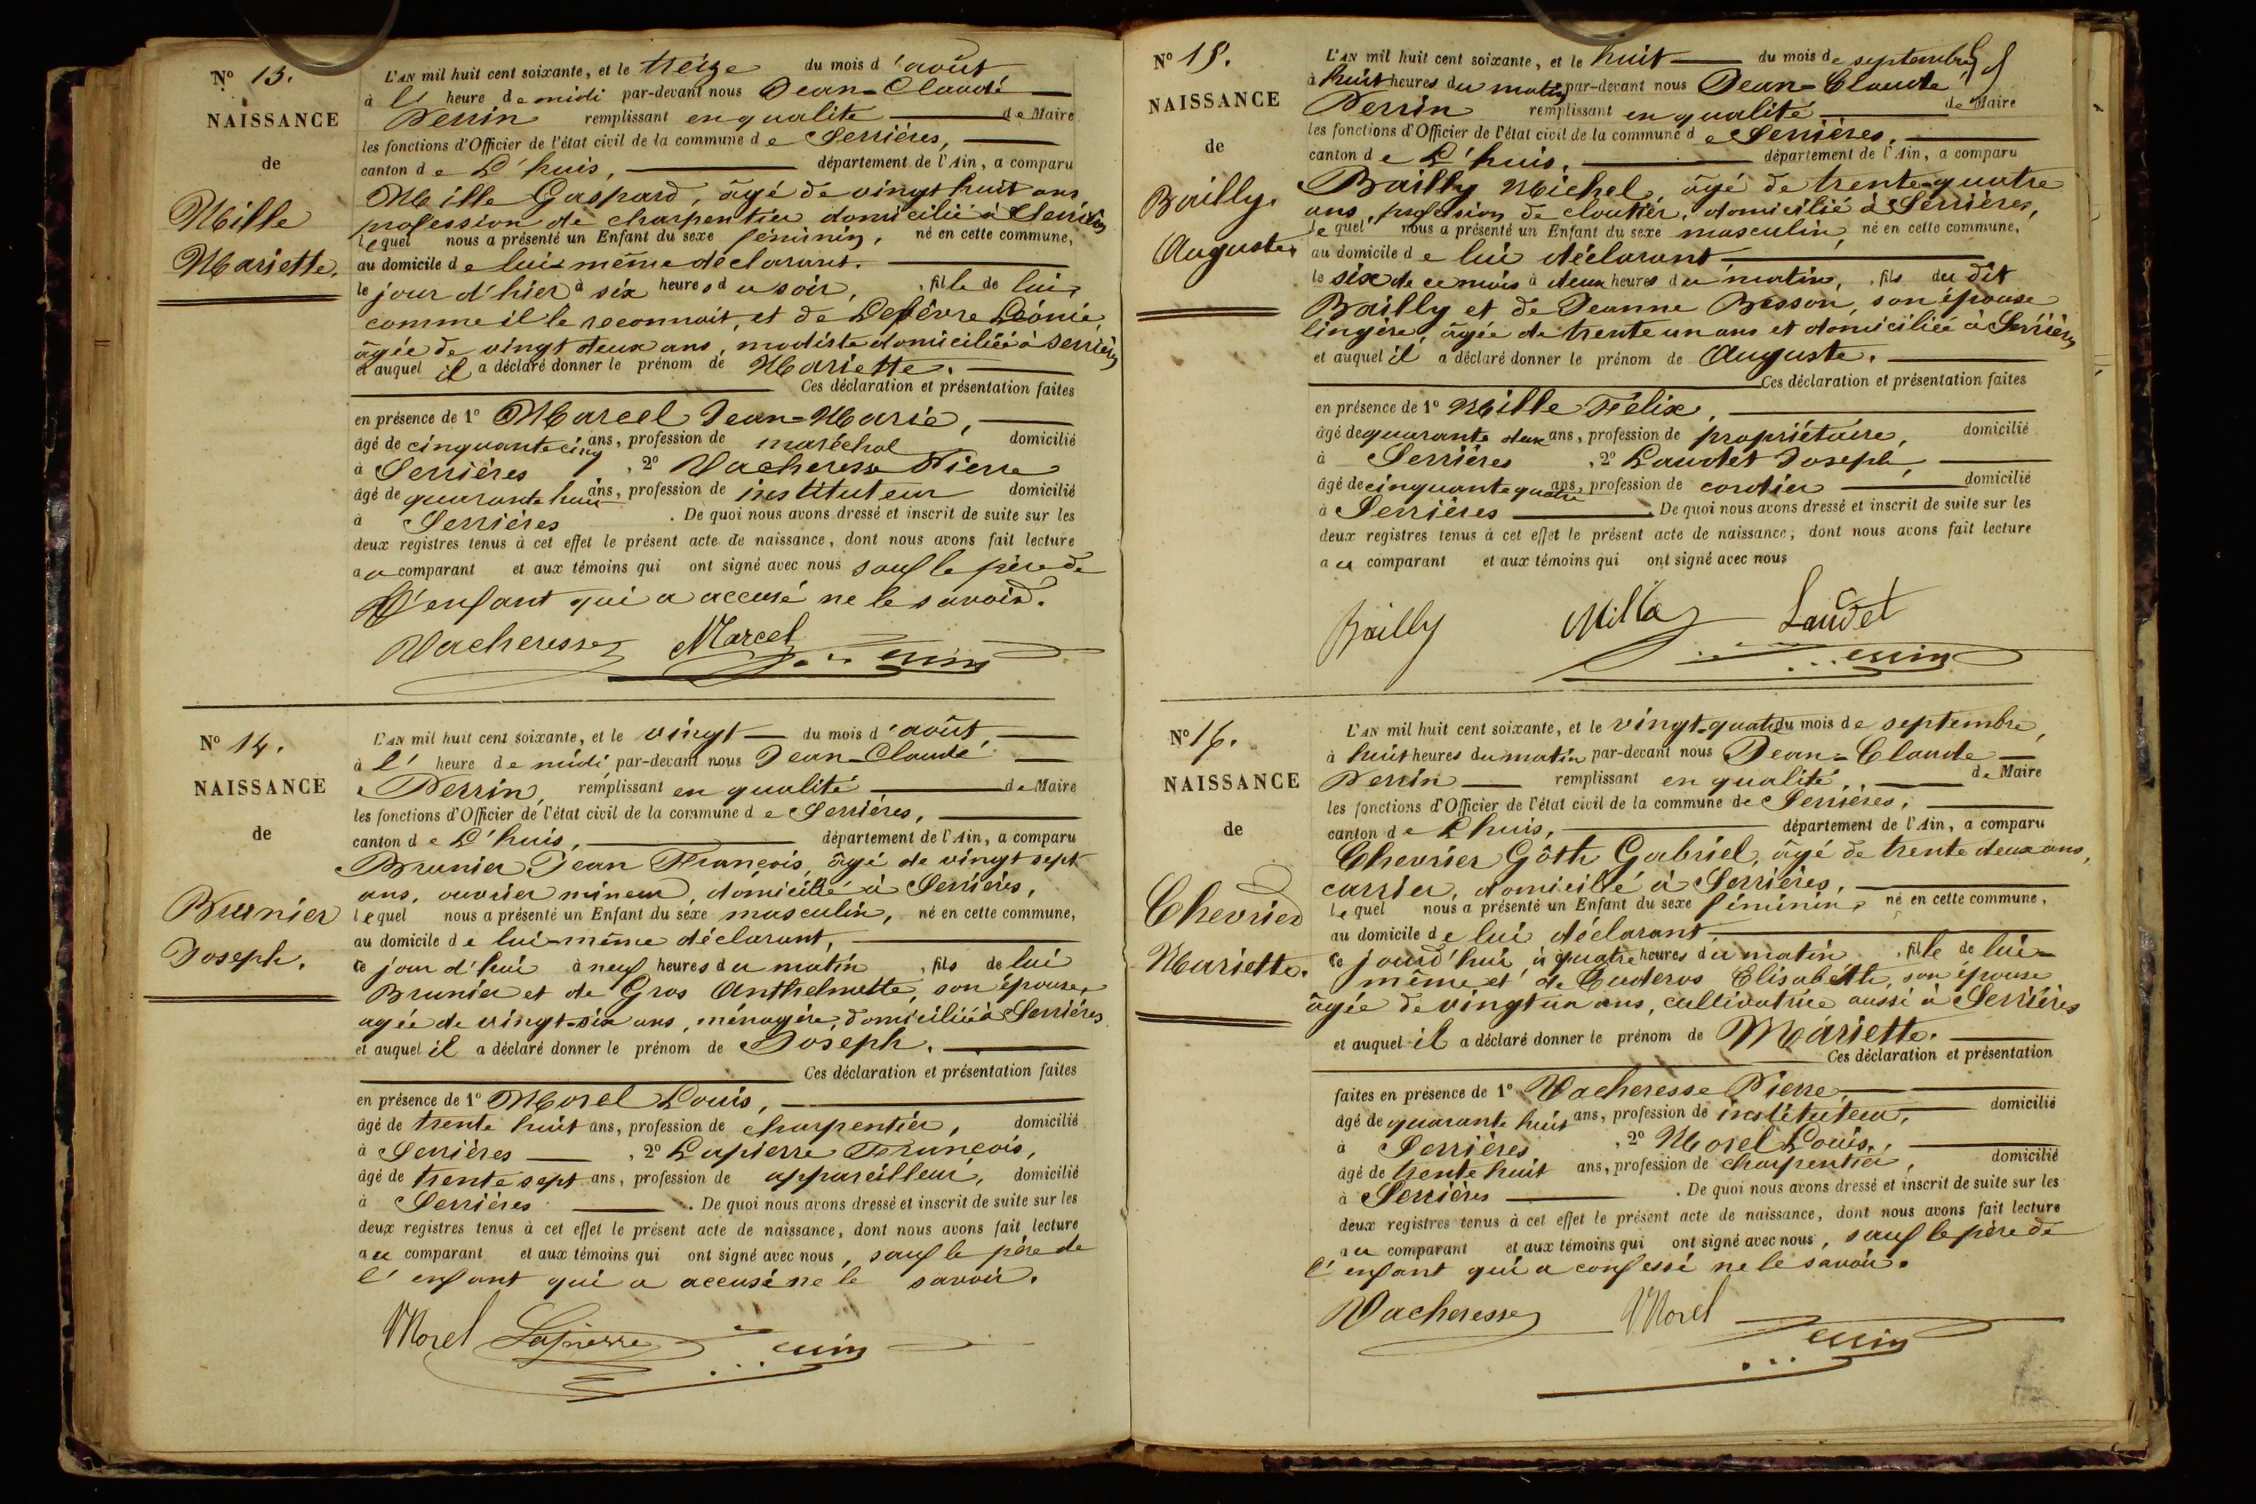 N° 13.
NAISSANCE
de
Mille
Mariette.
L'AN mil huit cent soixante, et le treize du mois d'août
à l' heure de midi par-devant nous Jean-Claude
Perrin remplissant en qualité de Maire
les fonctions d'Officier de l'état civil de la commune de Serrières,
canton de L'huis, département de l'Ain, a comparu
Mille Gaspard, âgé de vingt huit ans
profession de charpentier domicilié à Serrières
lequel nous a présenté un Enfant du sexe féminin, né en cette commune,
au domicile de lui-même déclarant.
le jour d'hier à six heures du soir, fille de lui,
comme il le reconnait, et de Lefèvre Léonie,
âgée de vingt deux ans, modiste domiciliée à Serrières
et auquel il a déclaré donner le prénom de Mariette.
Ces déclaration et présentation faites
en présence de 1° Marcel Jean-Marie,
âgé de cinquante cinq ans, profession de maréchal domicilié
à Serrières, 2° Vacheresse Pierre
âgé de quarante huit ans, profession de instituteur domicilié
à Serrières. De quoi nous avons dressé et inscrit de suite sur les
deux registres tenus à cet effet le présent acte de naissance, dont nous avons fait lecture
au comparant et aux témoins qui ont signé avec nous sauf le père de
l'enfant qui a accusé ne le savoir.
Vacheresse Marcel Perrin
N° 14.
NAISSANCE
de
Brunier
Joseph.
L'AN mil huit cent soixante, et le vingt du mois d'août
à l' heure de midi par-devant nous Jean-Claude
Perrin, remplissant en qualité de Maire
les fonctions d'Officier de l'état civil de la commune de Serrières,
canton de L'huis, département de l'Ain, a comparu
Brunier Jean François, âgé de vingt sept
ans, ouvrier mineur, domicilié à Serrières,
lequel nous a présenté un Enfant du sexe masculin, né en cette commune,
au domicile de lui-même déclarant,
ce jour d'hui à neuf heures du matin, fils de lui
Brunier et de Gros Anthelmette, son épouse,
agée de vingt-six ans, ménagère, domiciliée à Serrières
et auquel il a déclaré donner le prénom de Joseph.
Ces déclaration et présentation faites
en présence de 1° Morel Louis,
âgé de trente huit ans, profession de charpentier, domicilié
à Serrières, 2° Lapierre François,
âgé de trente sept ans, profession de appareilleur, domicilié
à Serrières. De quoi nous avons dressé et inscrit de suite sur les
deux registres tenus à cet effet le présent acte de naissance, dont nous avons fait lecture
au comparant et aux témoins qui ont signé avec nous, sauf le père de
l'enfant qui a accusé ne le savoir.
Morel Lapierre Perrin
N° 15.
NAISSANCE
de
Bailly.
Auguste.
L'AN mil huit cent soixante, et le huit du mois de septembre
à huit heures du matin par-devant nous Jean-Claude
Perrin remplissant en qualité de Maire
les fonctions d'Officier de l'état civil de la commune de Serrières,
canton de L'huis, département de l'Ain, a comparu
Bailly Michel, âgé de trente-quatre
ans, profession de cloutier, domicilié à Serrières,
lequel nous a présenté un Enfant du sexe masculin, né en cette commune,
au domicile de lui déclarant
le six de ce mois à deux heures du matin, fils du dit
Bailly et de Jeanne Besson, son épouse
lingère, âgée de trente un ans et domiciliée à Serrières
et auquel il a déclaré donner le prénom de Auguste.
Ces déclaration et présentation faites
en présence de 1° Mille Félix,
âgé de quarante deux ans, profession de propriétaire, domicilié
à Serrières, 2° Laudet Joseph,
âgé de cinquante quatre ans, profession de cordier domicilié
à Serrières. De quoi nous avons dressé et inscrit de suite sur les
deux registres tenus à cet effet le présent acte de naissance, dont nous avons fait lecture
au comparant et aux témoins qui ont signé avec nous
Bailly Mille Laudet
Perrin
N° 16.
NAISSANCE
de
Chevrier
Mariette.
L'AN mil huit cent soixante, et le vingt-quatre du mois de septembre,
à huit heures du matin par-devant nous Jean-Claude
Perrin remplissant en qualité, de Maire
les fonctions d'Officier de l'état civil de la commune de Serrières,
canton de L'huis, département de l'Ain, a comparu
Chevrier Gôth Gabriel, âgé de trente deux ans,
carrier, domicilié à Serrières,
lequel nous a présenté un Enfant du sexe féminin, né en cette commune,
au domicile de lui déclarant
ce jourd'hui à quatre heures du matin, fille de lui-
même et de Cuderos Elisabeth, son épouse
âgée de vingt un ans, cultivatrice aussi à Serrières
et auquel il a déclaré donner le prénom de Mariette.
Ces déclaration et présentation
faites en présence de 1° Vacheresse Pierre,
âgé de quarante huit ans, profession de instituteur, domicilié
à Serrières, 2° Morel Louis,
âgé de trente huit ans, profession de charpentier, domicilié
à Serrières. De quoi nous avons dressé et inscrit de suite sur les
deux registres tenus à cet effet le présent acte de naissance, dont nous avons fait lecture
au comparant et aux témoins qui ont signé avec nous, sauf le père de
l'enfant qui a confessé ne le savoir.
Vacheresse Morel Perrin